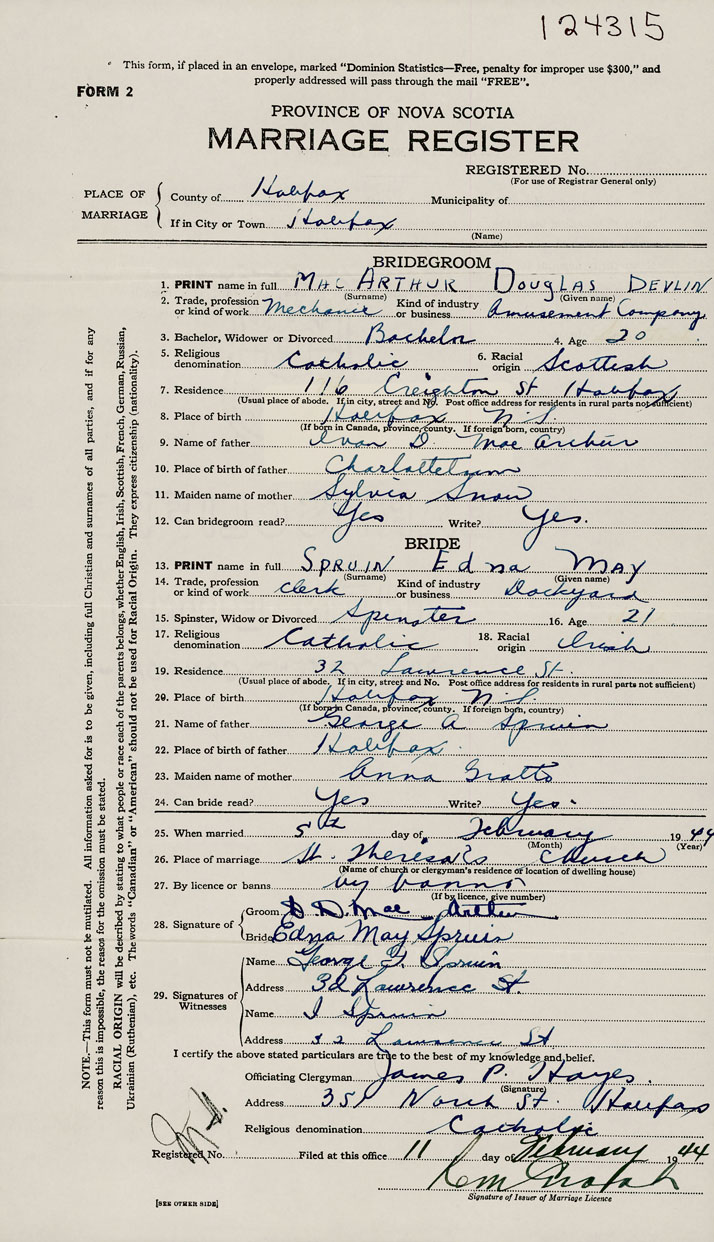 124315
This form, if placed in an envelope, marked “Dominion Statistics—Free, penalty for improper use $300,” and
properly addressed will pass through the mail “FREE”.
FORM 2
PROVINCE OF NOVA SCOTIA
MARRIAGE REGISTER
REGISTERED No.
(For use of Registrar General only)
PLACE OF MARRIAGE
County of Halifax Municipality of
If in City or Town Halifax
(Name)
BRIDEGROOM
1. PRINT name in full MacArthur Douglas Devlin
(Surname) (Given name)
2. Trade, profession or kind of work Mechanic Kind of industry or business Amusement Company
3. Bachelor, Widower or Divorced Bachelor 4. Age 20
5. Religious denomination Catholic 6. Racial origin Scottish
7. Residence 116 Creighton St Halifax
(Usual place of abode. If in city, street and No. Post office address for residents in rural parts not sufficient)
8. Place of birth Halifax N S
(If born in Canada, province, county. If foreign born, country)
9. Name of father Ivan D MacArthur
10. Place of birth of father Charlottetown
11. Maiden name of mother Sylvia Snow
12. Can bridegroom read? Yes Write? Yes.
BRIDE
13. PRINT name in full Spruin Edna May
(Surname) (Given name)
14. Trade, profession or kind of work Clerk Kind of industry or business Dockyard
15. Spinster, Widow or Divorced Spinster 16. Age 21
17. Religious denomination Catholic 18. Racial origin Irish
19. Residence 32 Lawrence St.
(Usual place of abode. If in city, street and No. Post office address for residents in rural parts not sufficient)
20. Place of birth Halifax N S
(If born in Canada, province, county. If foreign born, country)
21. Name of father George A Spruin
22. Place of birth of father Halifax
23. Maiden name of mother Anna Gratto
24. Can bride read? Yes Write? Yes.
25. When married 5th day of February 1944
(Month) (Year)
26. Place of marriage St. Theresa's Church
(Name of church or clergyman's residence or location of dwelling house)
27. By licence or banns by banns
(If by licence, give number)
28. Signature of
Groom D. D. MacArthur
Bride Edna May Spruin
29. Signatures of Witnesses
Name George F. Spruin
Address 32 Lawrence St.
Name I Spruin
Address 32 Lawrence St
I certify the above stated particulars are true to the best of my knowledge and belief.
Officiating Clergyman James P. Hayes.
(Signature)
Address 351 North St. Halifax
Religious denomination Catholic
Registered No. Filed at this office 11 day of February 1944
Signature of Issuer of Marriage Licence
[SEE OTHER SIDE]
NOTE.—This form must not be mutilated. All information asked for is to be given, including full Christian and surnames of all parties, and if for any
reason this is impossible, the reason for the omission must be stated.
RACIAL ORIGIN will be described by stating to what people or race each of the parents belongs, whether English, Irish, Scottish, French, German, Russian,
Ukrainian (Ruthenian), etc. The words “Canadian” or “American” should not be used for Racial Origin. They express citizenship (nationality).